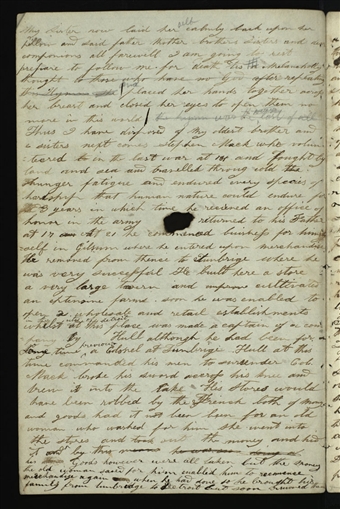 My Sister now laid herself calmly back upon her
pillow and said father Mother brothers Sisters and
companions all farewell I am going to rest
prepare to follow me for death
thought to those who have no God after repeating
this Hymn she placed her hands together across
her breast and closed her eyes to open them no
more in this world
Thus I have disposed of My oldest brother and
a sisters next comes Stephen Mack who volun
teered in the last war at and fought by
land and sea and travelled through cold
hunger fatigue and endured every species
hardship that human nature could endure
years in which time he received an office of
honor in the army returned to his Father
at 17 at 21 he commenced business for him
self in Gilsum where he entered upon merchandise
He removed from thense to Tunbrige where he
was very successful He built here a store
a very large tavern and cultivated
an extensive farms soon he was enabled to
open 2 wholesale and retail establishments
whilst at this place was made a captain of a com
pany by Hull although he had been for a
long time previous a Colonel at Tunbrige Hull at this
time commanded his men to surrender Col.
Mack broke his sword across his knee and
threw it into the Lake His Stores would
have been robbed by the French both of money
and goods had it not been for an old
woman who worked for him she went into
the stores and took out the money and hid
it and by this
Goods however were all taken but the money
the old woman saved for him enabled him to recommence
merchandize again when he had done so he brought his
family from tunbridge to detroit and soon